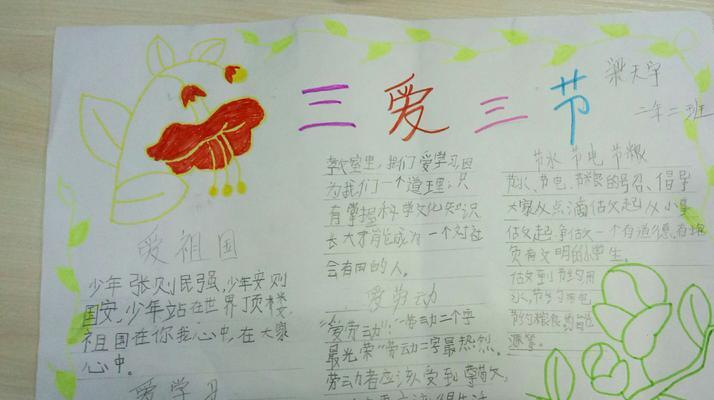 三爱三节
梁天宇
二年二班
爱祖国
少年张则民强,少年安则
国安,少年站在世界顶楼,
祖国在你我心中,在大家
心中。
爱学习
教室里,我们爱学习,因
为我们一个道理:只
有掌握科学文化知识
长大才能成为一个对社
会有用的人。
爱劳动
"爱劳动":"劳动二个字
最光荣"劳动二字最热烈。
劳动者应该受到尊敬
节水 节电 节粮
节水、节电、节粮的号召、倡导
大家从点滴做起从小事
做起争做一个有道德,有
负有文明的小学生。
做到节约用
水,节约用电
节约粮食